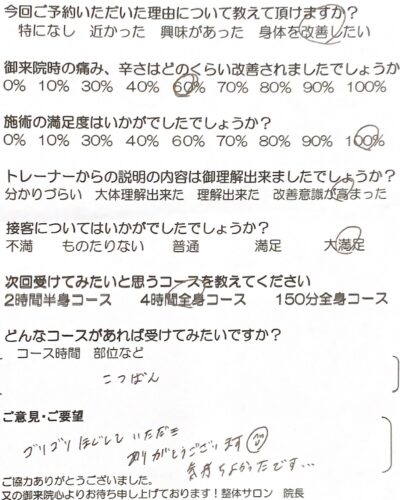 今回ご予約いただいた理由について教えて頂けますか？
特になし 近かった 興味があった 身体を改善したい
御来院時の痛み、辛さはどのくらい改善されましたでしょうか
0% 10% 30% 40% 60% 70% 80% 90% 100%
施術の満足度はいかがでしたでしょうか？
0% 10% 30% 40% 60% 70% 80% 90% 100%
トレーナーからの説明の内容は御理解出来ましたでしょうか？
分かりづらい 大体理解出来た 理解出来た 改善意識が高まった
接客についてはいかがでしたでしょうか？
不満 ものたりない 普通 満足 大満足
次回受けてみたいと思うコースを教えてください
2時間半身コース 4時間全身コース 150分全身コース
どんなコースがあれば受けてみたいですか？
コース時間 部位など
こつばん
ご意見・ご要望
ゴリゴリ ほぐして いただき
ありがとうござい ます
気持ちよかったです...
ご協力ありがとうございました。
又の御来院心よりお待ち申し上げております！整体サロン 院長